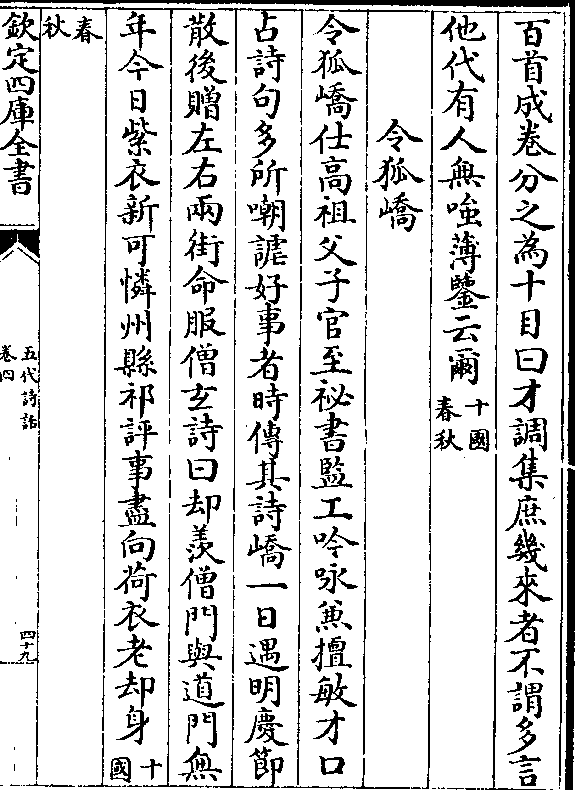 百首成卷分之為十目曰才調集庶幾來者不謂多言
他代有人無嗤薄鑒云爾十國春秋
令狐嶠
令狐嶠仕高祖父子官至祕書監工吟咏兼擅敏才口
占詩句多所嘲謔好事者時傳其詩嶠一日遇明慶節
散後贈左右兩街命服僧玄詩曰却羨僧門與道門無
年今日紫衣新可憐州縣祁評事盡向荷衣老却身十國
春秋
欽定四庫全書
五代詩話
卷四
四十九